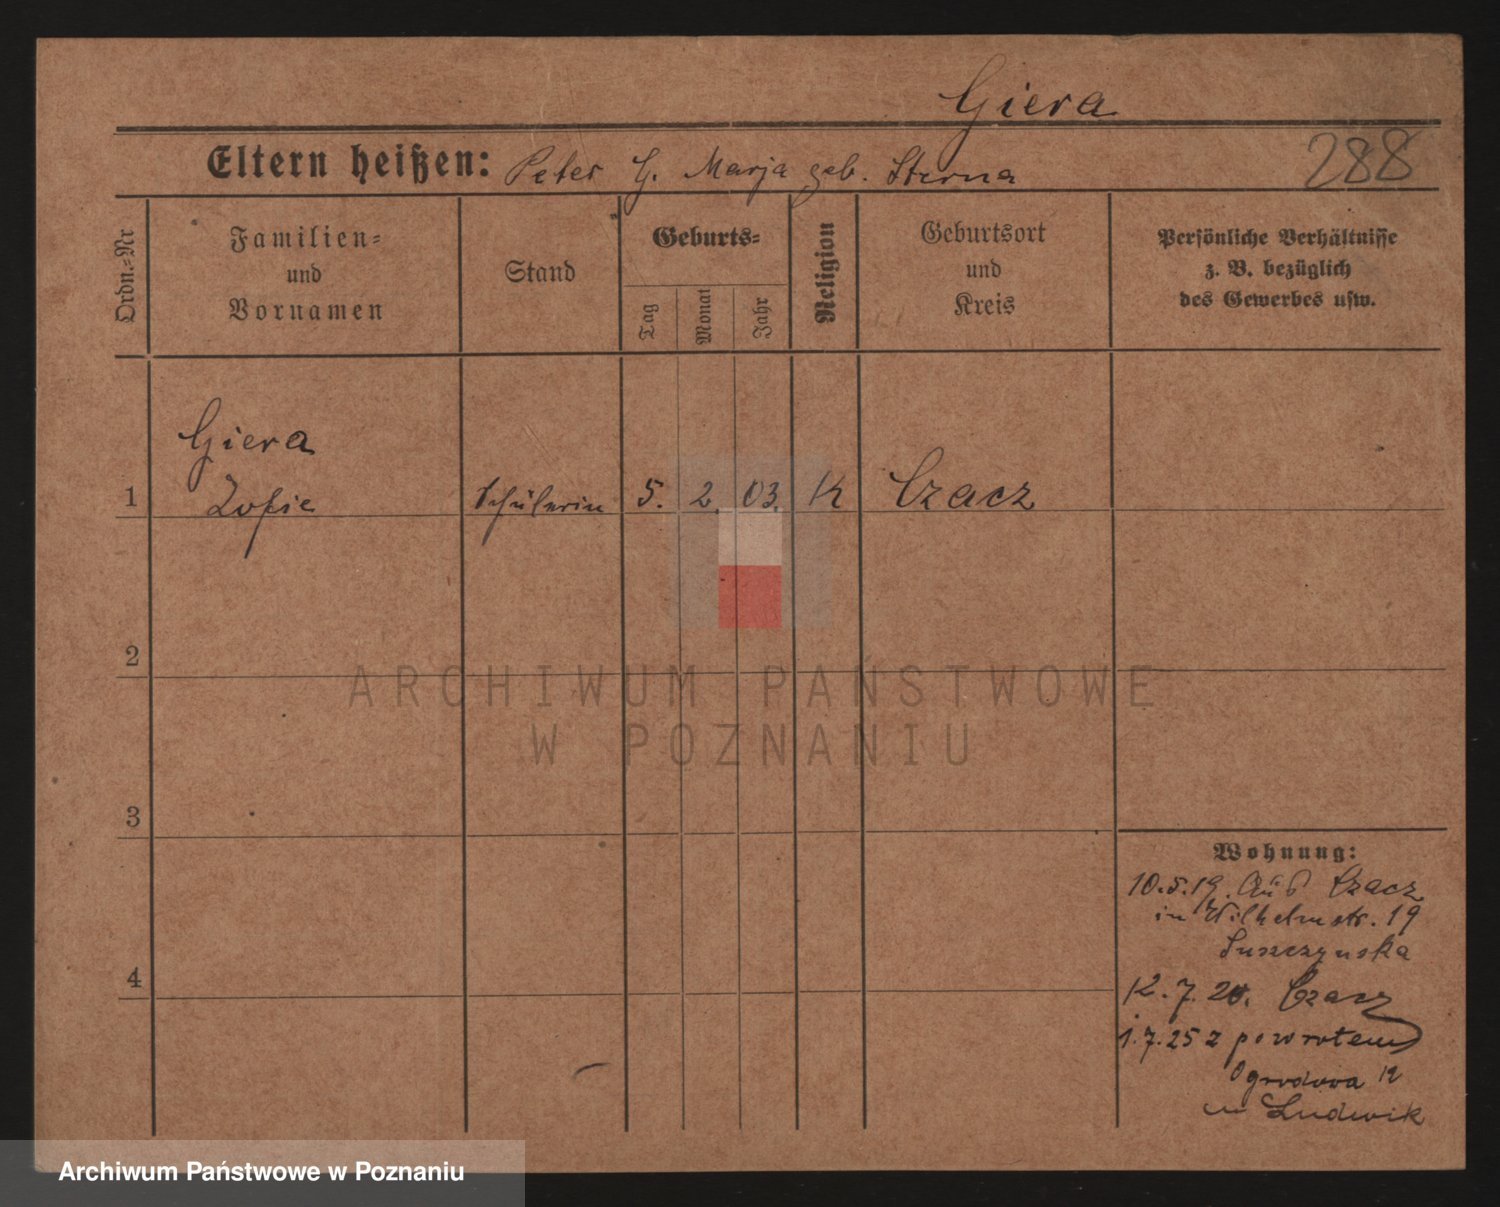 Giera
Eltern heißen: Peter G. Marja geb. Sterna
288
Ordn.=Nr
Familien=
und
Vornamen
Stand
Geburts=
Tag
Monat
Jahr
Religion
Geburtsort
und
Kreis
Persönliche Verhältnisse
z. B. bezüglich
des Gewerbes usw.
Giera
1 Zofie Schülerin 5. 2. 03. K Czacz
2
ARCHIWUM PAŃSTWOWE
W POZNANIU
3
Wohnung:
10.5.19. Aus Czacz
in Wilhelmstr. 19
Suszczynska
4
12.7.20. Czacz
1.7.25 z powrotem
Ogrodowa 12
Ludwik
Archiwum Państwowe w Poznaniu